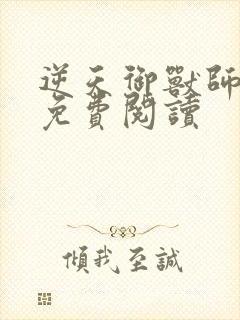 逆天御獸師
免費閱讀
傾我至誠